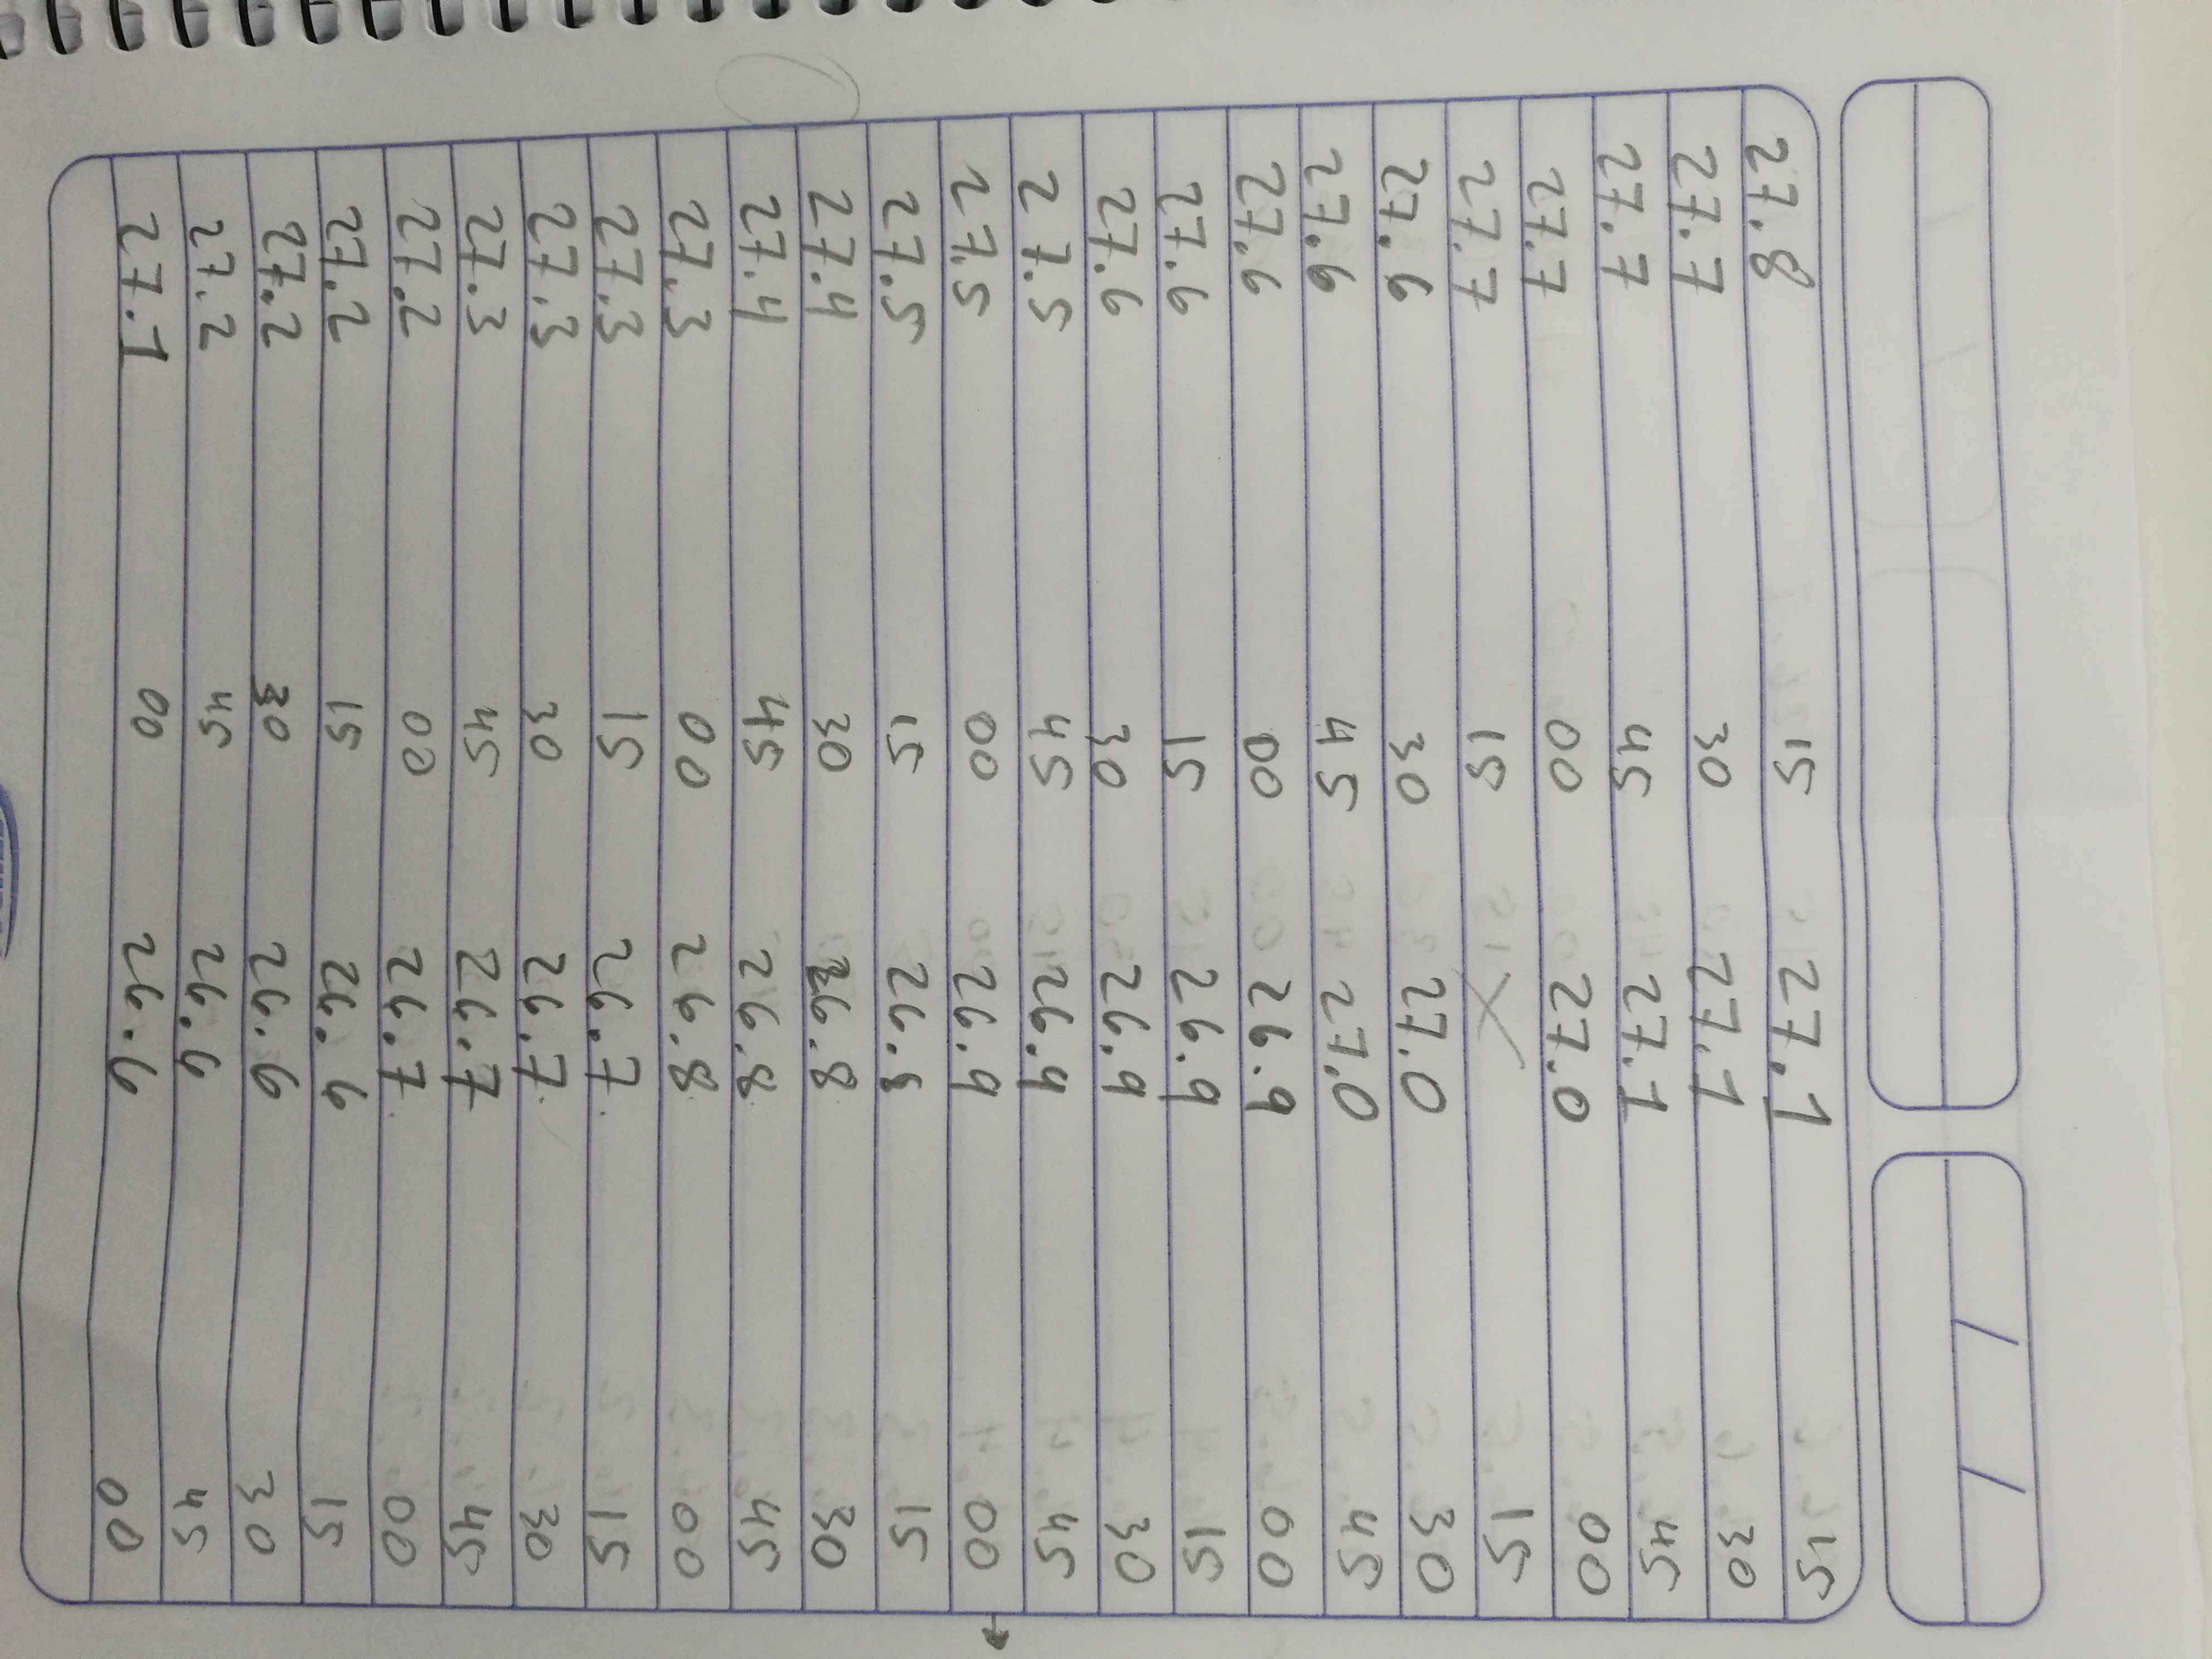 / /
27.8 15 27.1 15
27.7 30 27.1 30
27.7 45 27.1 45
27.7 00 27.0 00
27.7 15 X 15
27.6 30 27.0 30
27.6 45 27.0 45
27.6 00 26.9 00
27.6 15 26.9 15
27.6 30 26.9 30
27.5 45 26.9 45
27.5 00 26.9 00
27.5 15 26.8 15
27.4 30 26.8 30
27.4 45 26.8 45
27.3 00 26.8 00
27.3 15 26.7 15
27.3 30 26.7 30
27.3 45 26.7 45
27.2 00 26.7 00
27.2 15 26.6 15
27.2 30 26.6 30
27.2 45 26.6 45
27.1 00 26.6 00